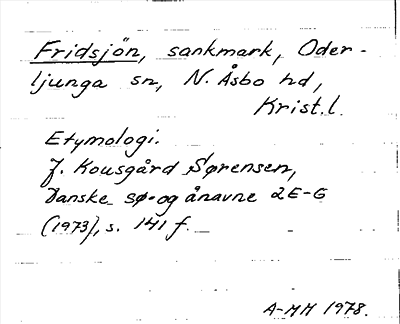 Fridsjön, sankmark, Oder-
ljunga sn, N. Åsbo hd,
Krist.l.
Etymologi.
J. Kousgård Sørensen,
Danske sø- og ånavne 2E-G
(1973), s. 141 f.
A-MH 1978.